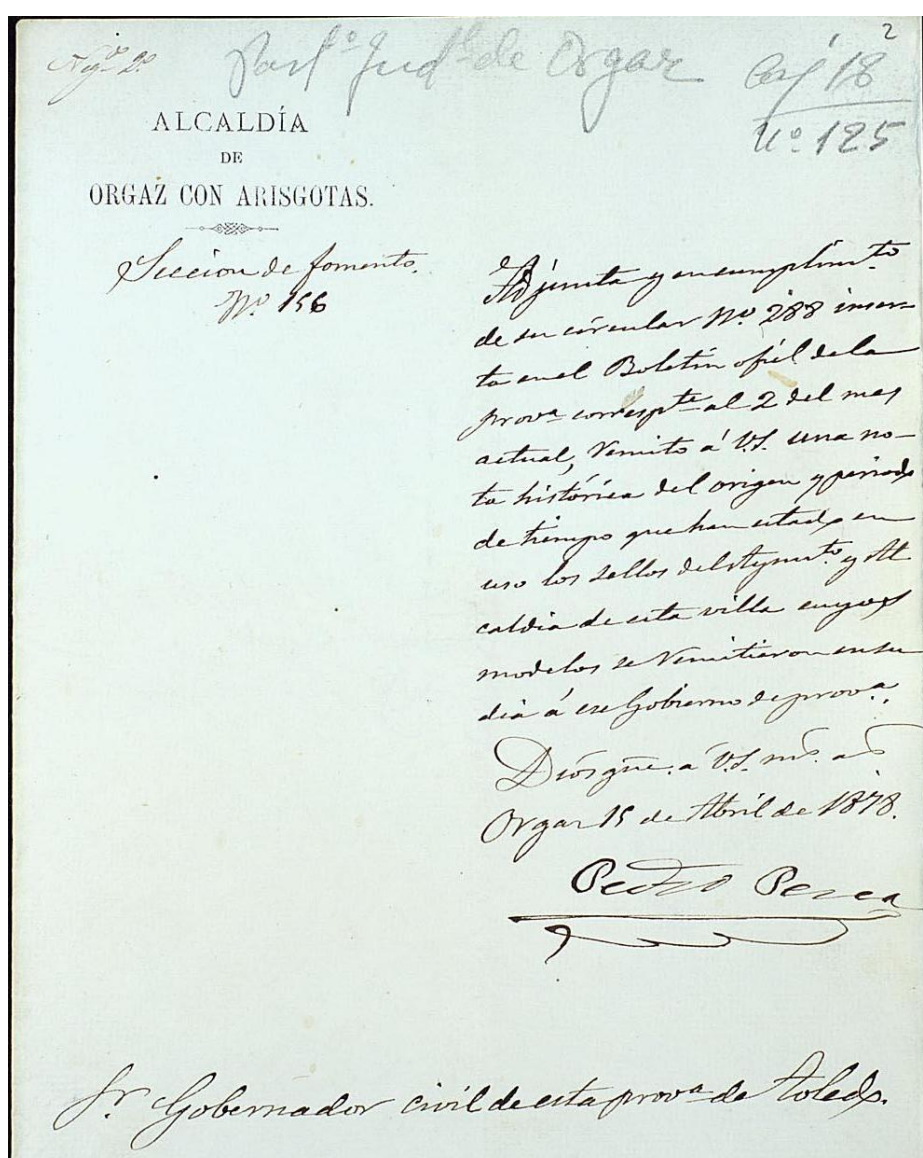 2
Neg.º 2º
Part.º Jud.l de Orgaz
Caj 18
nº 125
ALCALDÍA
DE
ORGAZ CON ARISGOTAS.
Seccion de fomento.
Nº 156
Adjunta y en cumplim.to
de su circular Nº 288 inser-
ta en el Boletin ofiél de la
prov.a corresp.te al 2 del mes
actual, remito á V.S. una no-
ta histórica del origen y periodo
de tiempo que han estado en
uso los sellos del Ayunt.to y Al
caldia de esta villa cuyos
modelos se remitieron en su
dia á ese Gobierno de prov.a.
Dios gũe. a V.S. m.s a.s
Orgaz 15 de Abril de 1878.
Pedro Perea
Sr Gobernador civil de esta prov.a de Toledo.